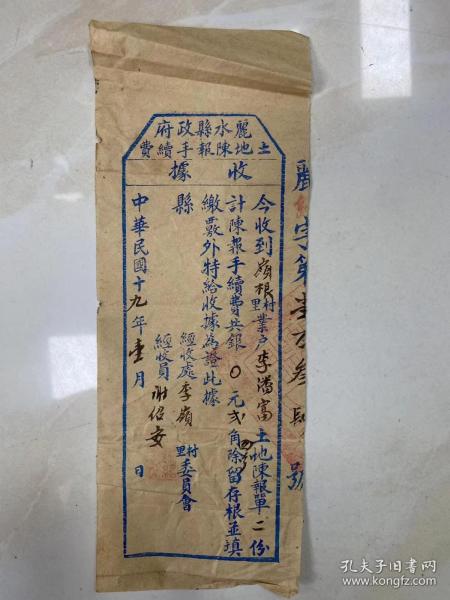 麗水縣政府
土地陳報手續費
收據
今收到嶺根村里業户李滿富土地陳報單二份
計陳報手續費共銀0元弍角除留存根並填
繳覈外特給收據為證此據
縣
經收處李嶺村里委員會
經收員謝紹安
中華民國十九年壹月 日
字第 号
孔夫子旧书网
www.kongfz.com